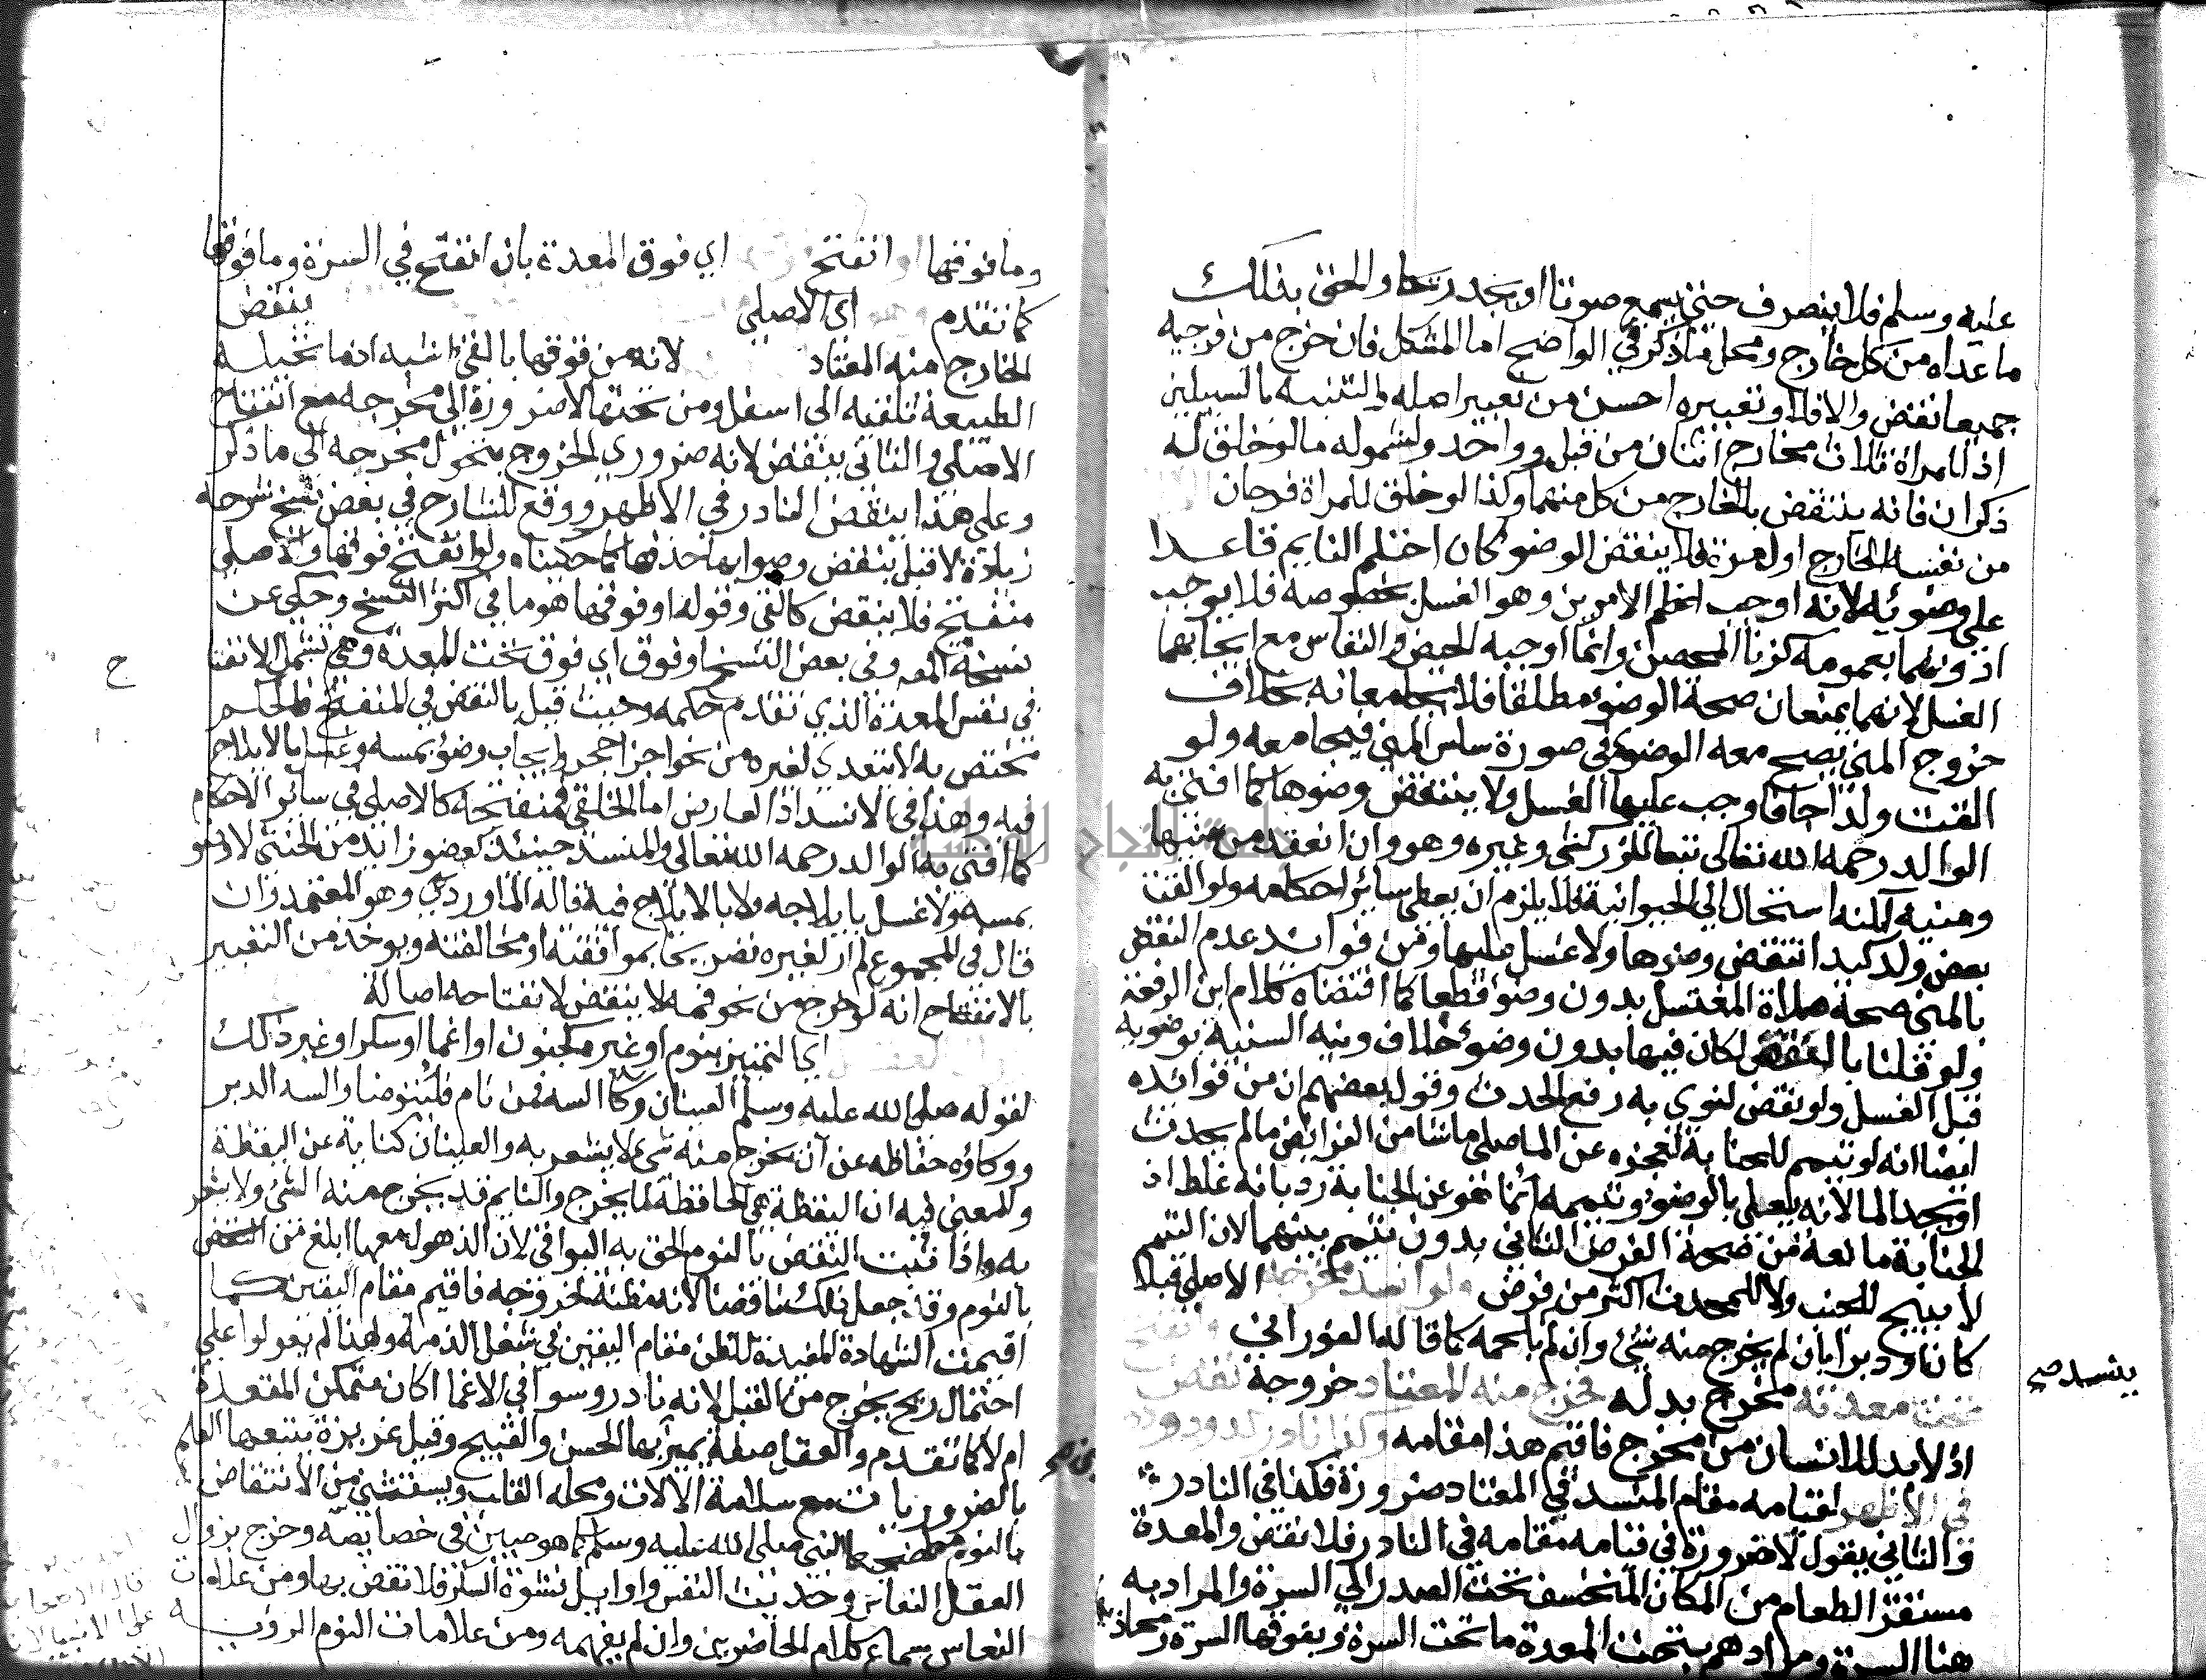 عليه وسلم فلا ينصرف حتى يسمع صوتا او يجد ريحا والحق بذلك
ما عداه من كل خارج ومحل ما ذكر في الواضح اما المشكل فان خرج من فرجيه
جميعا نقض والا فلا وتعبيره احسن من تعبير اصله والتنبيه بالسبيلين
اذ للمراة ثلاث مخارج اثنان من قبل وواحد ولشموله ما لو خلق له
ذكران فانه ينتقض بالخارج من كل منهما وكذا لو خلق للمراة فرجان
من نفسه الخارج اول مرة فلا ينقض الوضو كان احتلم النايم قاعدا
على وضوئه لانه اوجب اعظم الامرين وهو الغسل بخصوصه فلا يوجب
ادونهما بعمومه كزنا المحصن وانما اوجبه الحيض والنفاس مع ايجابهما
الغسل لانهما يمنعان صحة الوضوء مطلقا فلا يجامعانه بخلاف
خروج المني يصح معه الوضوء في صورة سلس المني فيجامعه ولو
القت ولدا جافا وجب عليها الغسل ولا ينتقض وضوها كما افتى به
الوالد رحمه الله تعالى تبعا للزركشي وغيره وهو وان انعقد من منيها
ومنيه لكنه استحال الى الحيوانية فلا يلزم ان يعطى ساير احكامه ولو القت
بعض ولد كيد انتقض وضوها ولا غسل عليها ومن فوائد عدم النقض
بالمني صحة صلاة المغتسل بدون وضوء قطعا كما اقتضاه كلام ابن الرفعة
ولو قلنا بالنقض لكان فيها بدون وضوء خلاف ونية السنية بوضويه
قبل الغسل ولو نقض لنوى به رفع الحدث وقول بعضهم ان من فوائده
ايضا انه لو تيمم للجنابة لعجزه عن الما صلى ما شا من الفرائض ما لم يحدث
او يجد الما لانه يصلي بالوضوء وتيممه انما هو عن الجنابة رد بانه غلط اذ
الجنابة مانعة من صحة الفرض الثاني بدون تيمم بينهما لان التيمم
لا يبيح للجنب ولا للمحدث اكثر من فرض ولو انسد مخرجه الاصلي قبلا
كان او دبرا بان لم يخرج منه شئ وان لم يلتحم كما قاله الفوراني وانفتح
تحت معدته مخرج بدله فخرج منه المعتاد خروجه نقض
ينسد صح
اذ لا بد للانسان من مخرج فاقيم هذا مقامه وكذا نادر كدود
في الاظهر لقيامه مقام المنسد في المعتاد ضرورة فكذا في النادر
والثاني يقول لا ضرورة في قيامه مقامه في النادر فلا نقض والمعدة
مستقر الطعام من المكان المنخسف تحت الصدر الى السرة والمراد به
هنا السرة ومرادهم بتحت المعدة ما تحت السرة وبفوقها السرة ومحاذيها
وما فوقها او انفتح اي فوق المعدة بان انفتح في السرة وما فوقها
كما تقدم وهو اي الاصلي ينقض
الخارج منه المعتاد لانه من فوقها بالقئ اشبه اذ ما تحيله
الطبيعة تلقيه الى اسفل ومن تحتها لا ضرورة الى مخرجه مع انفتاح
الاصلي والثاني ينقض لانه ضروري الخروج بتحول مخرجه الى ما ذكر
وعلى هذا ينقض النادر في الاظهر ووقع للشارح في بعض نسخ شرحه
زيادة لا قبل ينقض وصوابها حذفها ولو انفتح فوقها والاصلي
منفتح فلا ينقض كالقئ وقوله او فوقها هو ما في اكثر النسخ وحكي عن
نسخة المص وفي بعض النسخ او فوق اي فوق تحت المعدة وهي تشمل الانفتا
ح
في نفس المعدة الذي تقدم حكمه وحيث قيل بالنقض في المنفتح فالحكم
مختص به لا يتعدى لغيره من نحو اجزا حجر وايجاب وضوء بمسه وغسل بالايلاج
فيه وهذا في الانسداد العارض اما الخلقي فمنفتحه كالاصلي في سائر الاحكام
كما افتى به الوالد رحمه الله تعالى والمنسد حينئذ كعضو زايد من الخنثى لا وضو
بمسه ولا غسل بايلاجه ولا بالايلاج فيه قاله الماوردي وهو المعتمد وان
قال في المجموع لم ار لغيره تصريحا بموافقته او مخالفته ويوخذ من التعبير
بالانفتاح انه لو خرج من نحو فمه لا ينقض لانفتاحه اصالة
اي التمييز بنوم او غيره كجنون او اغما او سكر او غير ذلك
لقوله صلى الله عليه وسلم العينان وكا السه فمن نام فليتوضا والسه الدبر
ووكاؤه حفاظه عن ان يخرج منه شئ لا يشعر به والعينان كناية عن اليقظة
والمعنى فيه ان اليقظة هي الحافظة لما يخرج والنايم قد يخرج منه الشئ ولا يشعر
به واذا ثبت النقض بالنوم الحق به البواقي لان الذهول معها ابلغ من النقض
بالنوم وقد جعل ذلك ناقضا لانه مظنة لخروجه فاقيم مقام اليقين كما
اقيمت الشهادة المفيدة للظن مقام اليقين في شغل الذمة ولهذا لم يعولوا على
احتمال ريح يخرج من القبل لانه نادر وسوا في الاغما اكان متمكن المقعدة
ام لا كما تقدم والعقل صفة يميز بها الحسن والقبيح وقيل غريزة يتبعها العلم
بالضروريات مع سلامة الالات ومحله القلب ويستثنى من الانتقاض
بالنوم مضطجعا النبي صلى الله عليه وسلم كما هو مبين في خصايصه وخرج بزوال
العقل النعاس وحديث النفس واوايل نشوة السكر فلا نقض بها ومن علامات
النعاس سماع كلام الحاضرين وان لم يفهمه ومن علامات النوم الرؤية